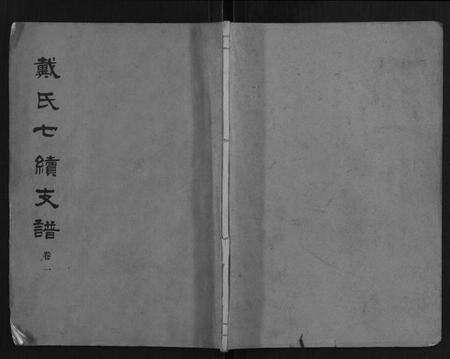 戴氏七續支譜
卷一